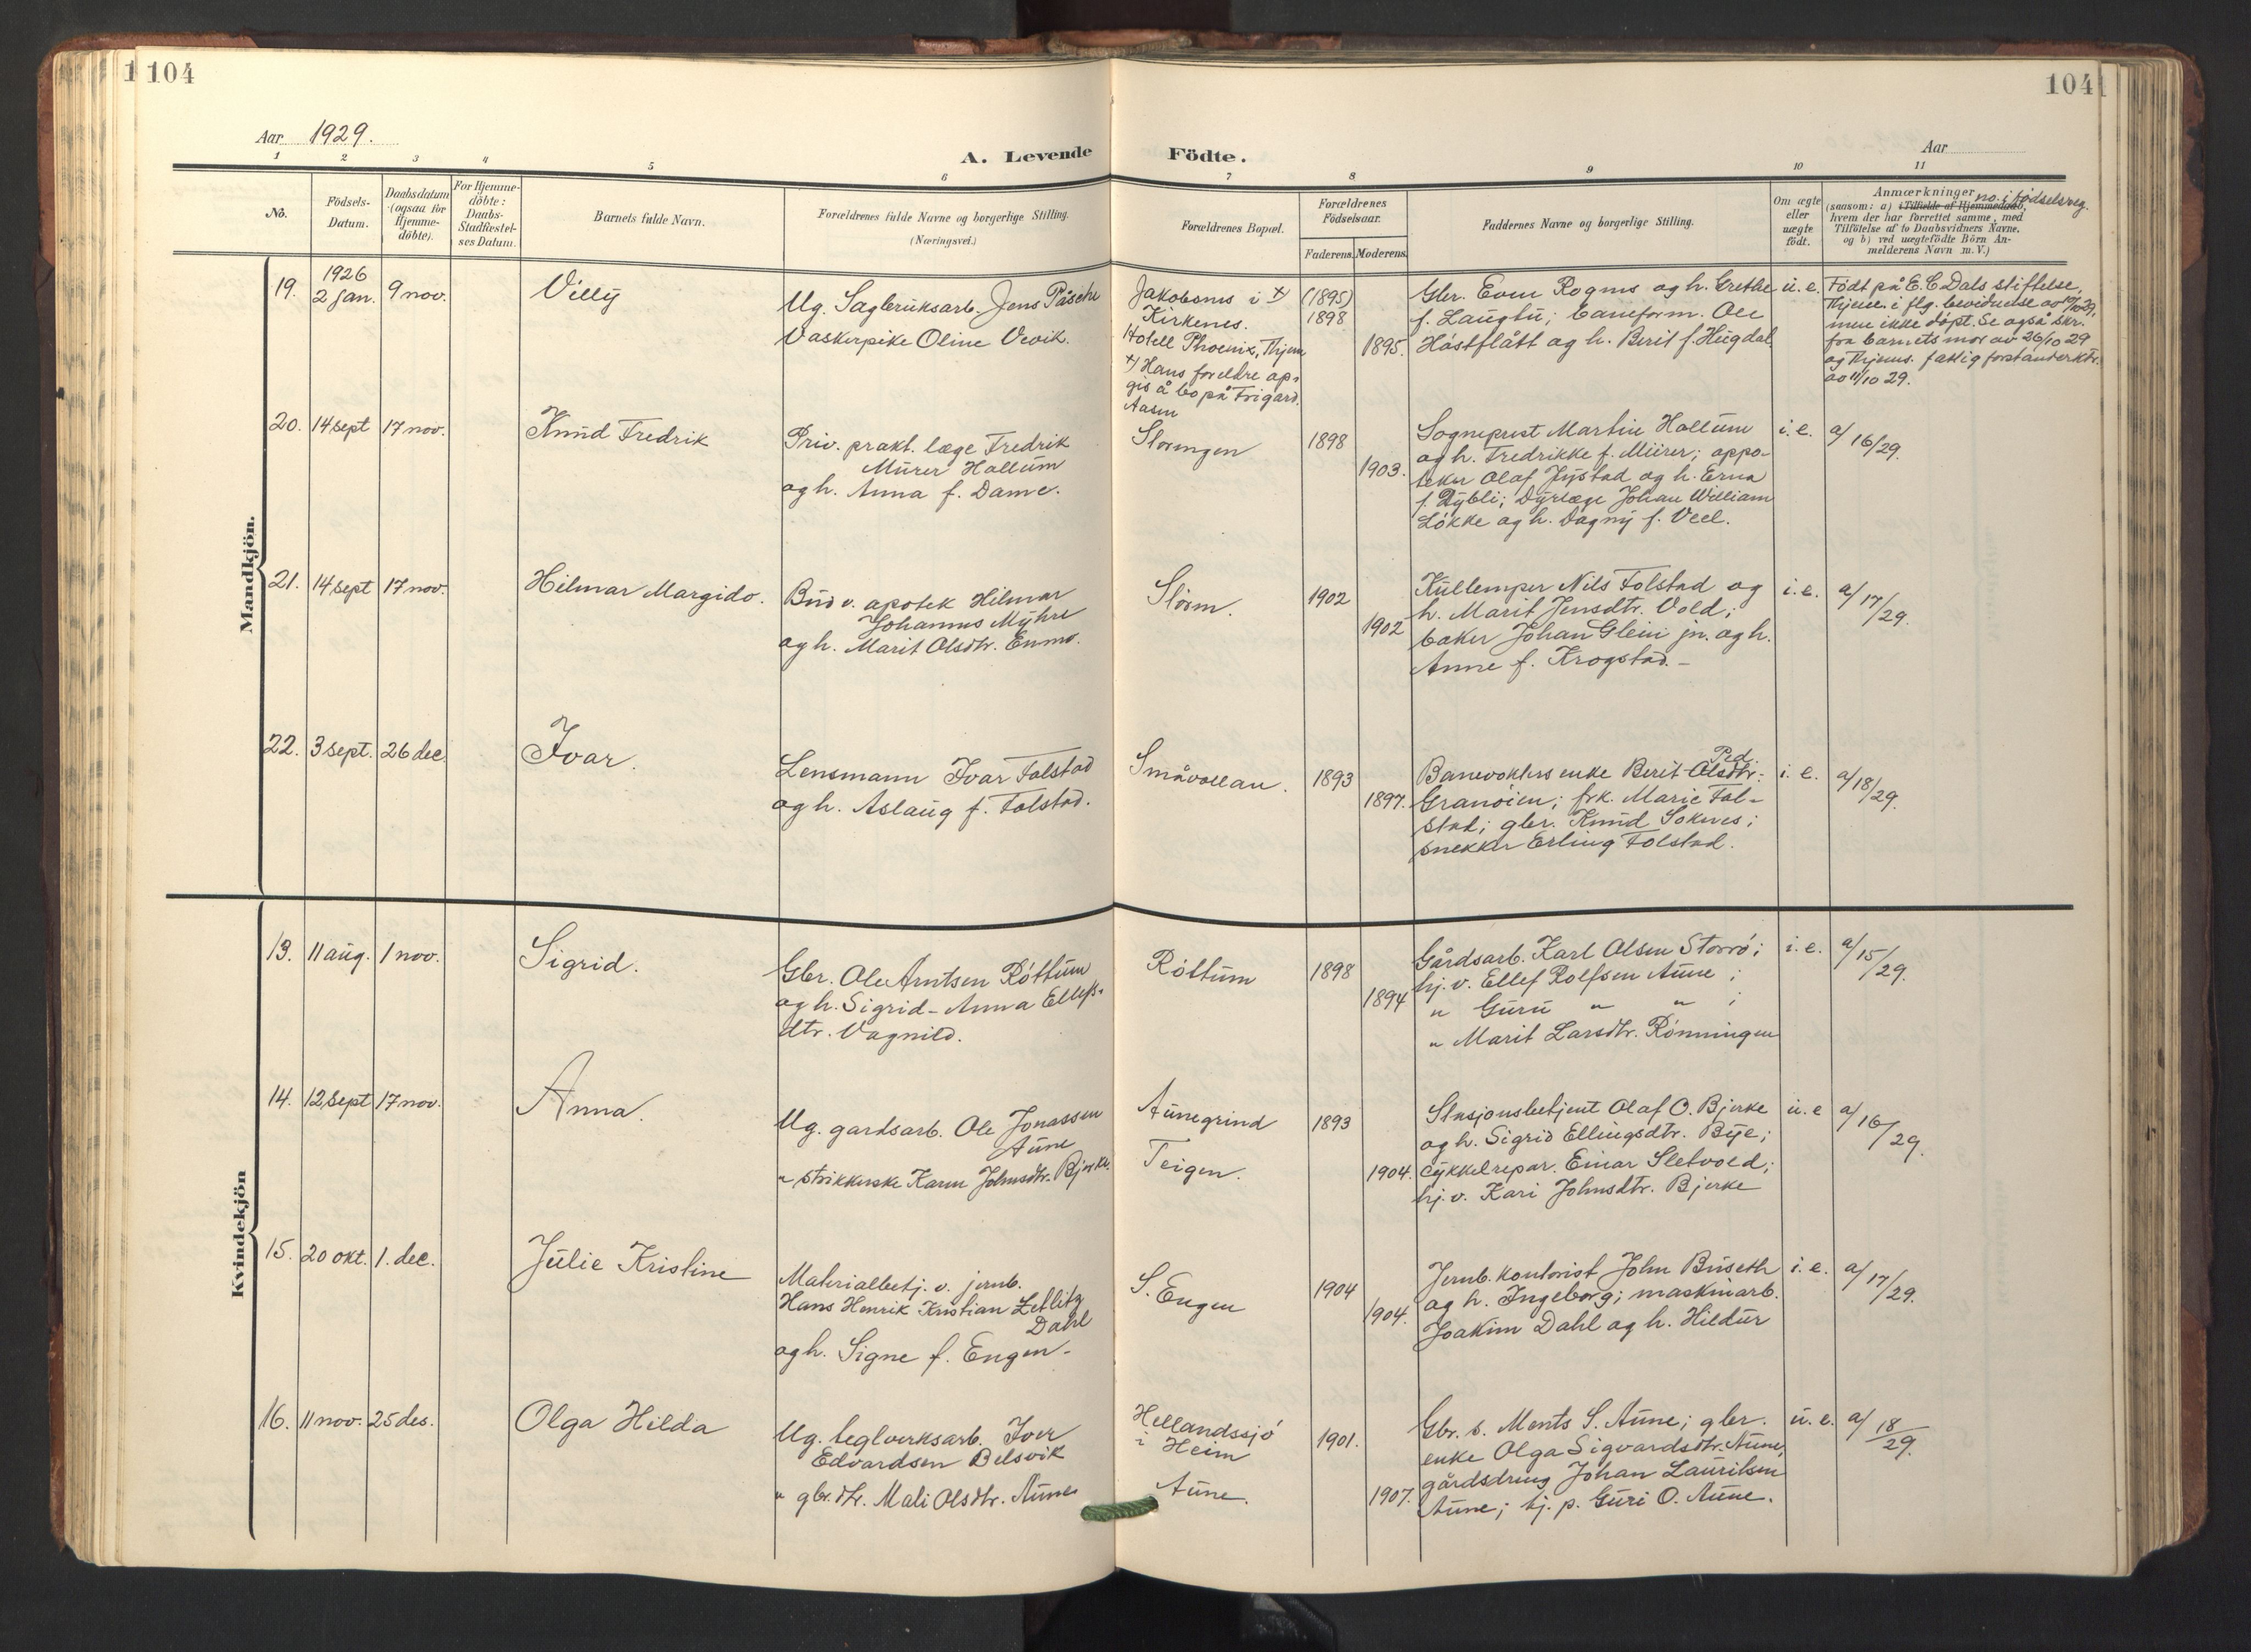 1 104
104
Aar 1929.
A. Levende Födte.
Aar
1 2 3 4 5 6 7 8 9 10 11
No.
Födsels-
Datum.
Daabsdatum
(ogsaa for
Hjemme-
döbte).
For Hjemme-
döbte:
Daabs-
Stadfæstel-
ses Datum.
Barnets fulde Navn.
Forældrenes fulde Navne og borgerlige Stilling.
(Næringsvei.)
Forældrenes Bopæl.
Forældrenes
Födselsaar.
Faderens. Moderens.
Faddernes Navne og borgerlige Stilling.
Om ægte
eller
uægte
födt.
Anmærkninger no. i fødselsreg.
(saasom: a) i Tilfælde af Hjemmedaab,
hvem der har forrettet samme, med
Tilföielse af to Daabsvidners Navne,
og b) ved uægtefödte Börn An-
melderens Navn m. V.)
Mandkjön.
19.
1926
2 jan.
9 nov.
Villy
Ug. Sagbruksarb. Jens Påsche
Vaskerpike Oline Vevik.
Jakobsnes i x)
Kirkenes.
Hotell Phoenix, Thjem
x) Hans foreldre op-
gis å bo på Trigard.
Aasen
(1895)
1898
1895.
Gbr. Even Rognes og h. Grethe
f. Laugtu; baneform. Ole
Håstflått og h. Berit f. Hugdal.
u. e.
Födt på E. C Dals stiftelse,
Thjem. i flg. bevidnelse av 19/10 29,
men ikke döpt. Se også skr.
fra barnets mor av 26/10 29
og Thjems. fatlig forstanderktr.
av 11/10 29.
20.
14 sept
17 nov.
Knud Fredrik
Priv. prakt. læge Fredrik
Mürer Hallum
og h. Anna f. Damc.
Storengen
1898
1903.
Sogneprest Martin Hallum
og h. Fredrikke f. Mürer; appo-
teker Olaf Jystad og h. Erna
f. Dybli; Dyrlæge Johan William
Lökke og h. Dagny f. Veel.
i. e.
a/16/29.
21.
14 sept
17 nov.
Hilmar Margido.
Bud v. apotek Hilmar
Johannes Myhre
og h. Marit Olsdtr. Enmo.
Stören.
1902
1902
Kullemper Nils Folstad og
h. Marit Jensdtr. Vold;
baker Johan Glein jr. og h.
Anne f. Krogstad. -
i. e.
a/17/29.
22.
3 sept.
26 dec
Ivar.
Lensmann Ivar Folstad
og h. Aslaug f. Folstad.
Småvollan.
1893
1897.
Ped.
Banevokters enke Berit Olsdtr.
Granöien; frk. Marie Fol-
stad; gbr. Knud Soknes;
snekker Erling Folstad.
i. e.
a/18/29.
Kvindekjön
13.
11 aug.
1 nov.
Sigrid.
Gbr. Ole Arntsen Röttum
og h. Sigrid-Anna Ellefs-
dtr. Vagnild.
Röttum
1898
1894
Gårdsarb. Karl Olsen Storrö;
hj. v. Ellef Rolfsen Aune;
" Guru " " ;
" Marit Larsdtr. Rönningen
i. e.
a/15/29.
14.
12 sept
17 nov.
Anna.
Ug. gardsarb. Ole Jonassen
Aune
" strikkerske Karen Johnsdtr. Bjerke.
Aunegrind
Teigen.
1893
1904.
Stasjonsbetjent Olaf O. Bjerke
og h. Sigrid Ellingsdtr. Bye;
cykkelrepar. Einar Sletvold;
hj. v. Kari Johnsdtr. Bjerke
u. e
a/16/29.
15.
20 okt.
1. dec.
Julie Kristine
Materialbetj. v. jernb.
Hans Henrik Kristian Zetlitz
Dahl
og h. Signe f. Engen -
S. Engen
1904
1904.
Jernb. kontorist John Buseth
og h. Ingeborg; maskinarb.
Joakim Dahl og h. Hildur
i. e.
a/17/29.
16.
11 nov.
25 des.
Olga Hilda
Ug. teglverksarb. Iver
Edvardsen Belsvik
" gbr. dtr. Mali Olsdtr. Aune
Hellandssjö
i Heim
Aune.
1901.
1907.
Gbr. s. Ments S. Aune; gbr.
enke Olga Sigvardsdtr. Aune;
gårdsdreng Johan Lauritsen
Aune; hj. p. Guri O. Aune.
u. e.
a/18/29.